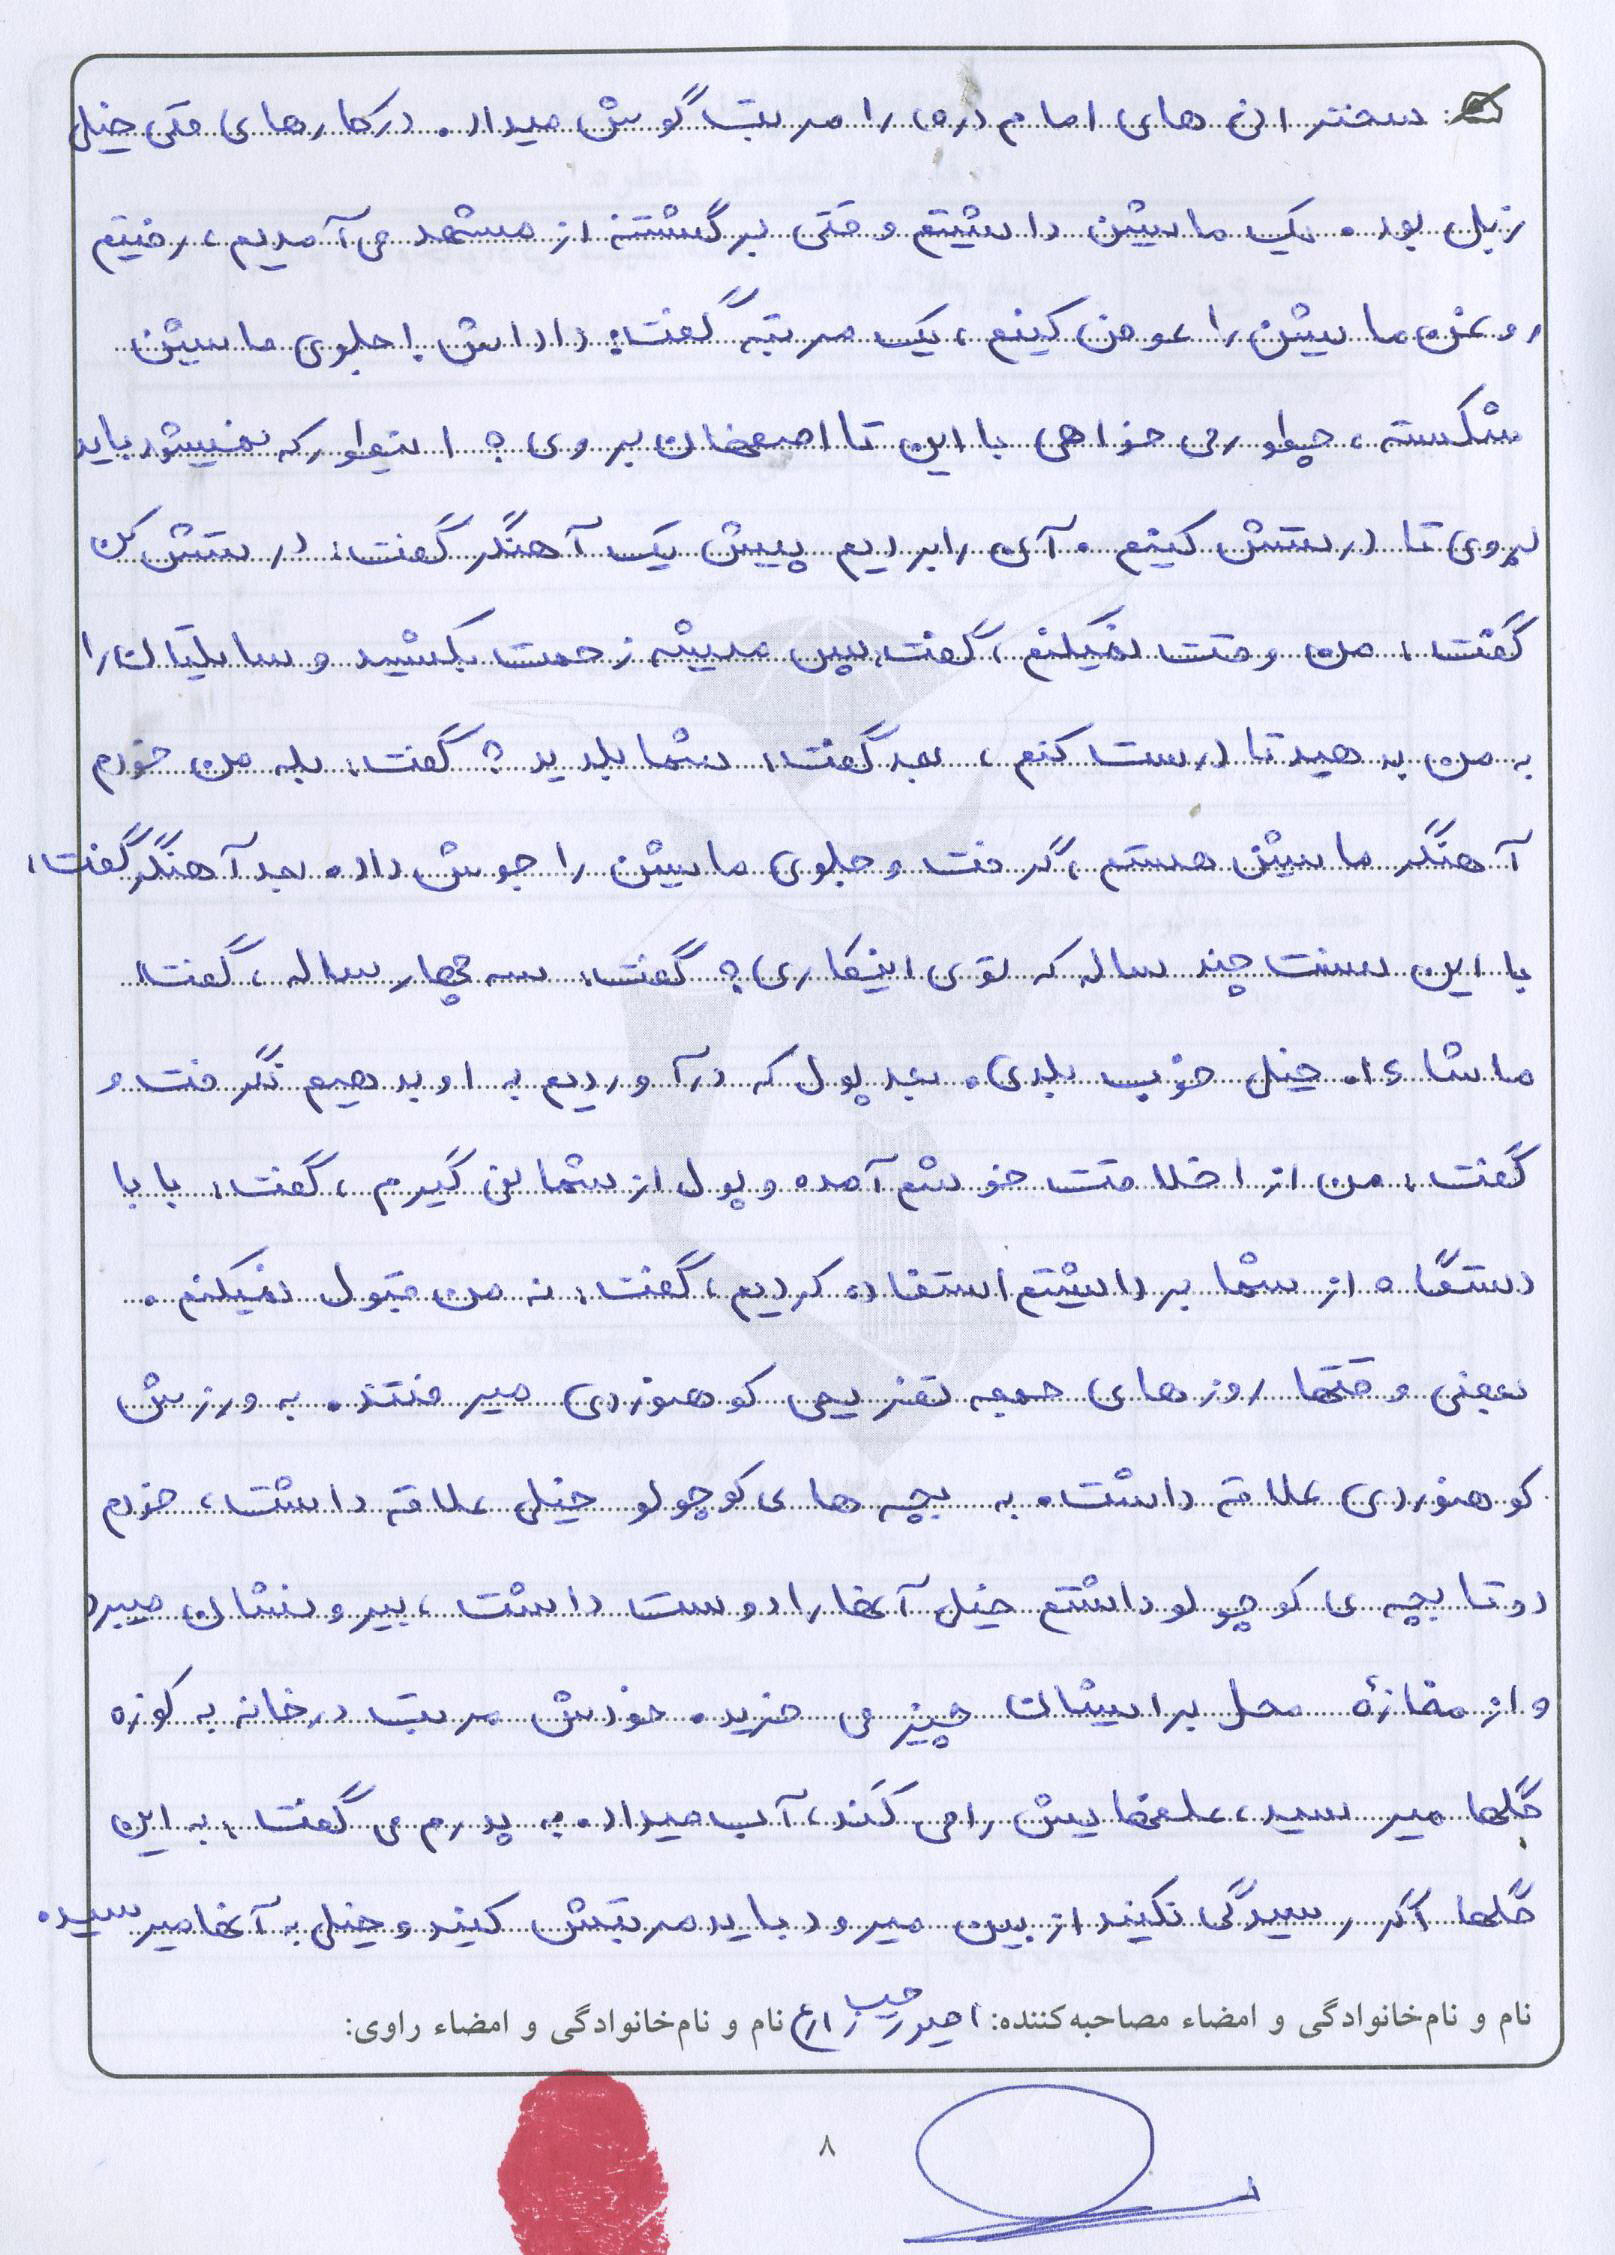 سخنرانی های امام (ره) را مرتب گوش میداد. درکارهای فنی خیلی
زبل بود. یک ماشین داشتیم وقتی برگشتنه از مشهد می آمدیم، رفتیم
روغن ماشین را عوض کنیم، یک مرتبه گفت: داداش! جلوی ماشین
شکسته، چطوری خواهی با این تا اصفهان بروی؟ اینطور که نمیشود باید
بروی تا درستش کنیم. آن را بردیم پیش یک آهنگر گفت: درستش کن
گفت: من وقت نمیکنم، گفت: پس میشه زحمت بکشید وسایلتان را
به من بدهید تا درست کنم، بعد گفت: شما بلدید؟ گفت: بله من خودم
آهنگر ماشین هستم، گرفت و جلوی ماشین را جوش داد. بعد آهنگر گفت:
با این سنت چند ساله که توی اینکاری؟ گفت: سه چهار ساله، گفت:
ماشاءا. خیلی خوب بلدی. بعد پول که درآوردیم به او بدهیم نگرفت و
گفت: من از اخلاقت خوشم آمده و پول از شما نمی گیرم، گفت: بابا
دستگاه از شما برداشتیم استفاده کردیم، گفت: نه من قبول نمیکنم.
بعضی وقتها روزهای جمعه تفریحی کوهنوردی میرفتند. به ورزش
کوهنوردی علاقه داشت. به بچه های کوچولو خیلی علاقه داشت، خودم
دوتا بچه ی کوچولو داشتم خیلی آنها را دوست داشت، بیرونشان میبرد
و از مغازهٔ محل برایشان چیز می خرید. خودش مرتب در خانه به کوزه
گلها میرسید، علفهایش را می کند، آب میداد. به پدرم می گفت: به این
گلها اگر رسیدگی نکنید از بین میرود باید مرتبش کنید و خیلی به آنها میرسید.
نام و نام‌خانوادگی و امضاء مصاحبه‌کننده: امیر نام و نام‌خانوادگی و امضاء راوی:
۸